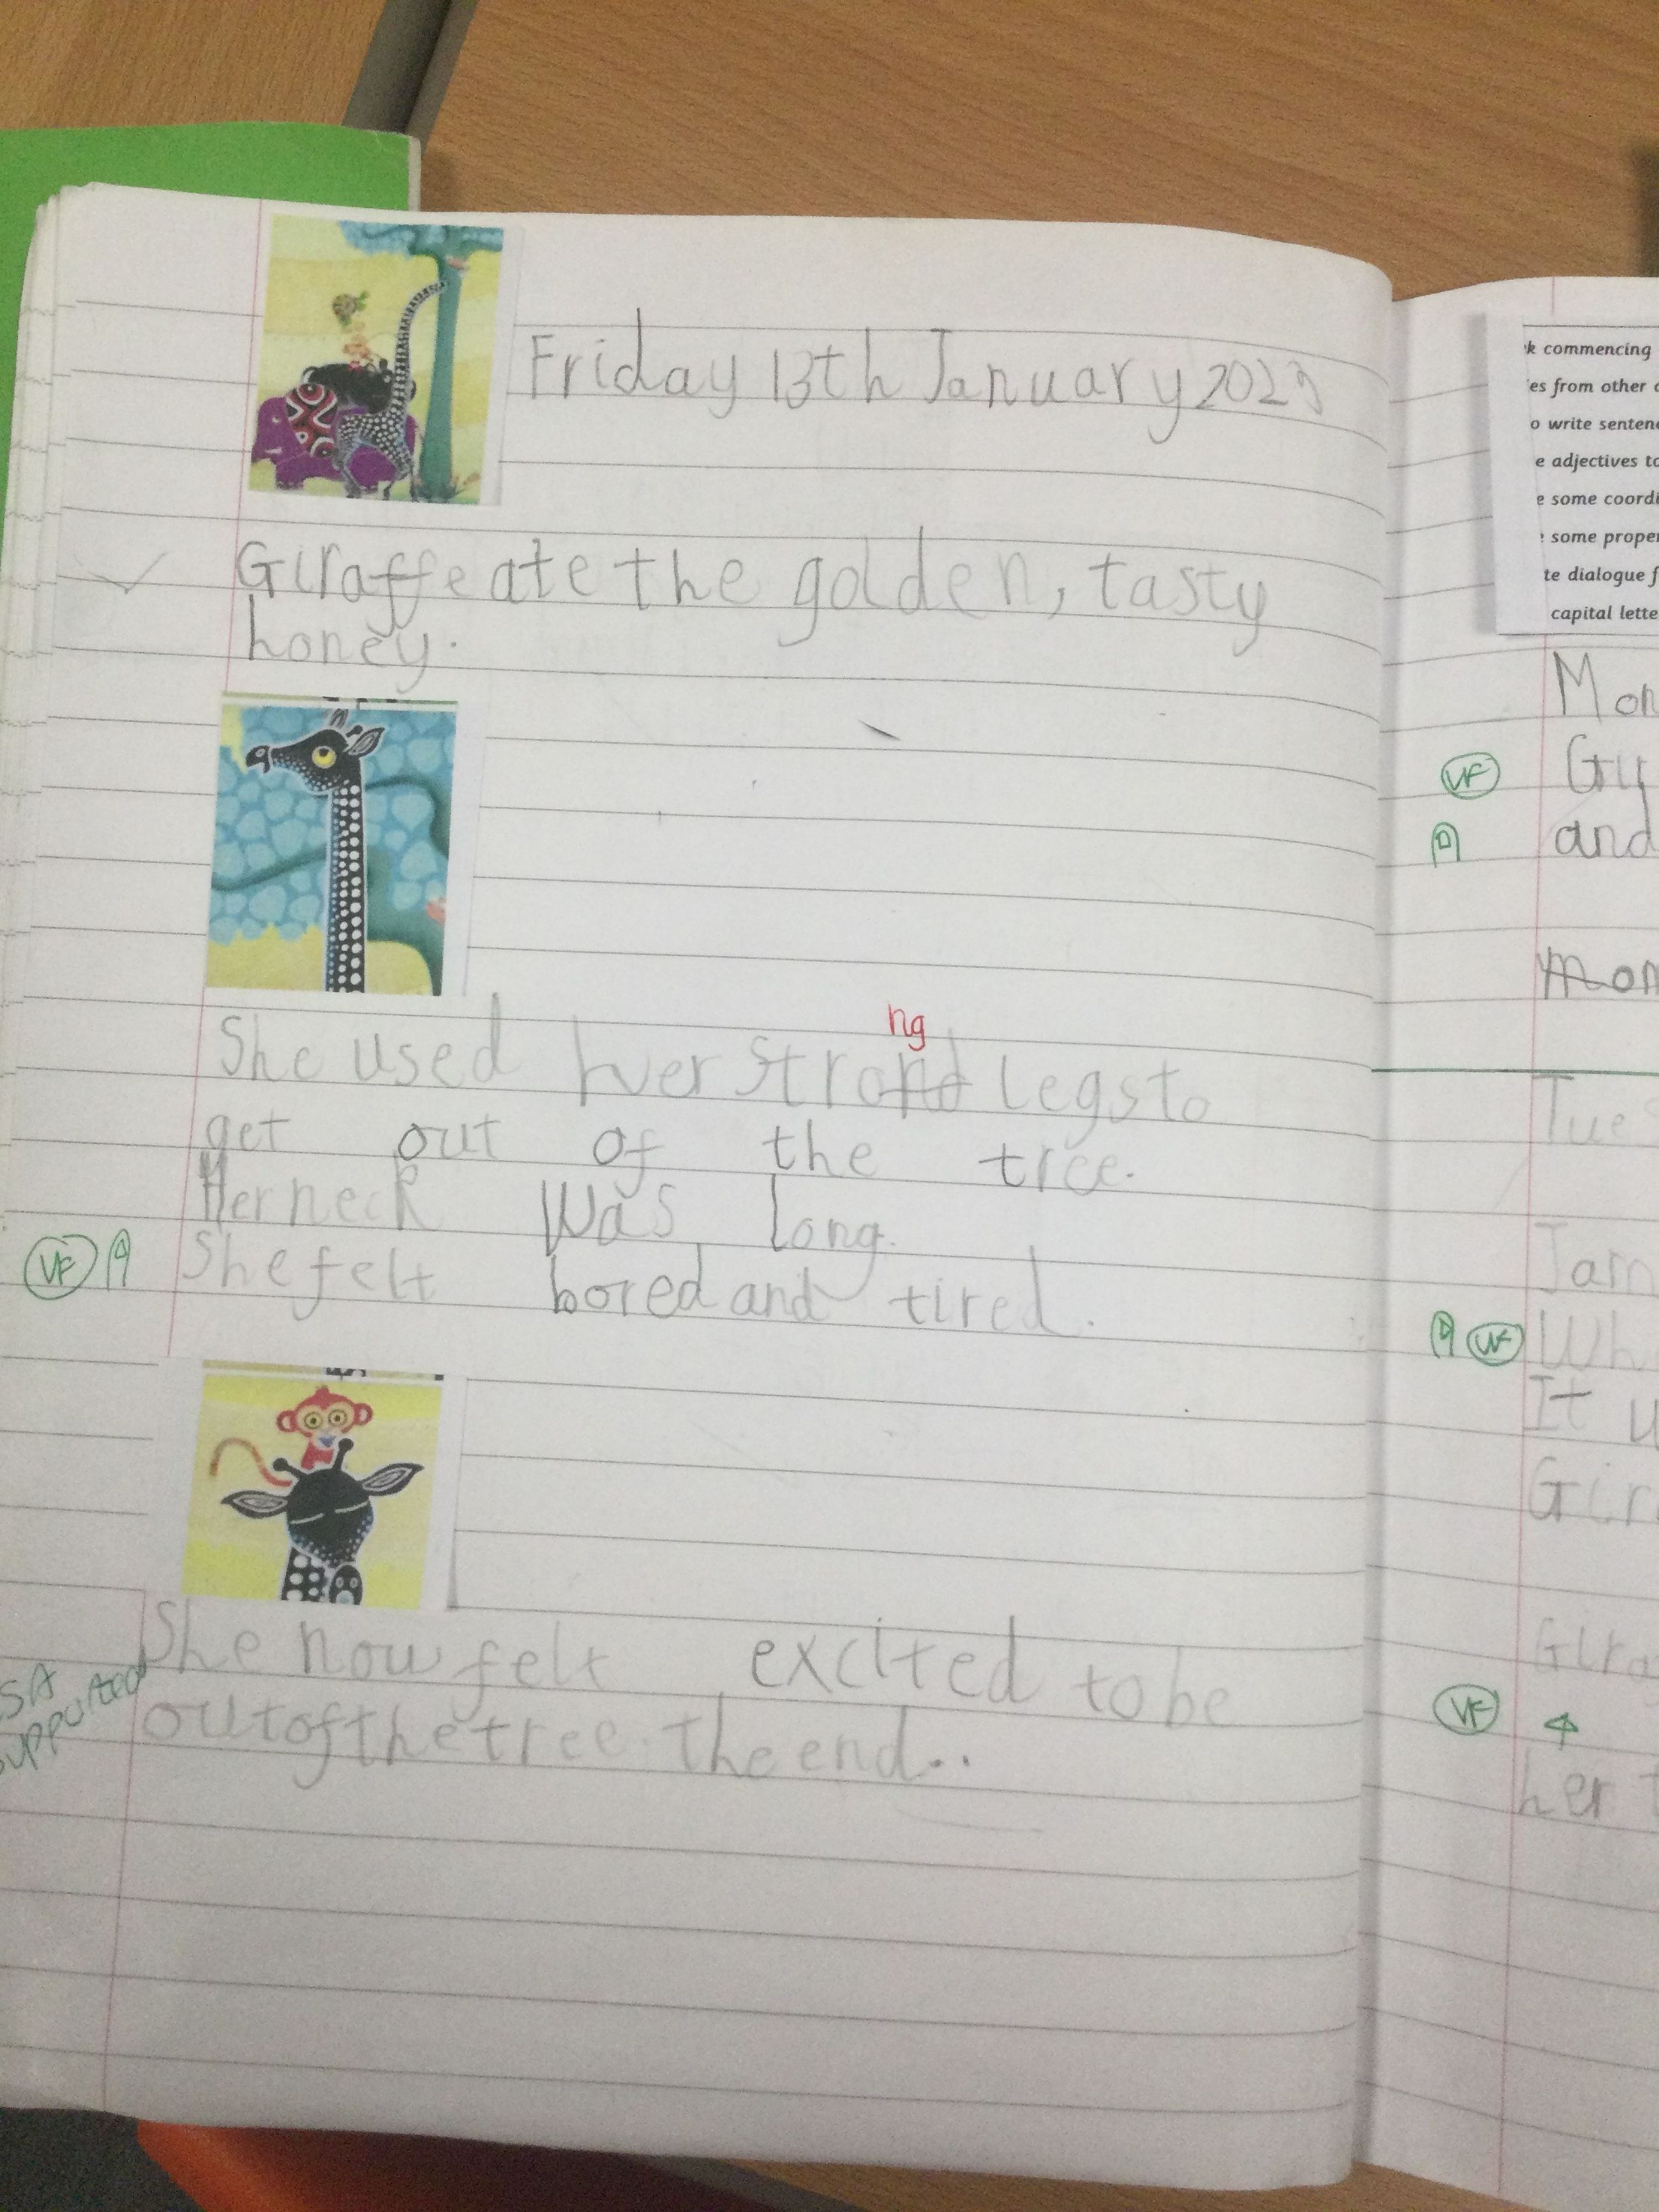 Friday 13th January 2023
Giraffe ate the golden, tasty
honey.
ng
She used her strond legs to
get out of the tree.
Her neck was long.
VF A She felt bored and tired.
She now felt excited to be
supported out of the tree. the end..
k commencing
es from other
o write senten
e adjectives to
e some coordi
some proper
te dialogue f
capital lette
Mon
VF Gu
A and
mon
Tue
Jam
A VF Wh
It u
Gir
Gira
VF
her t